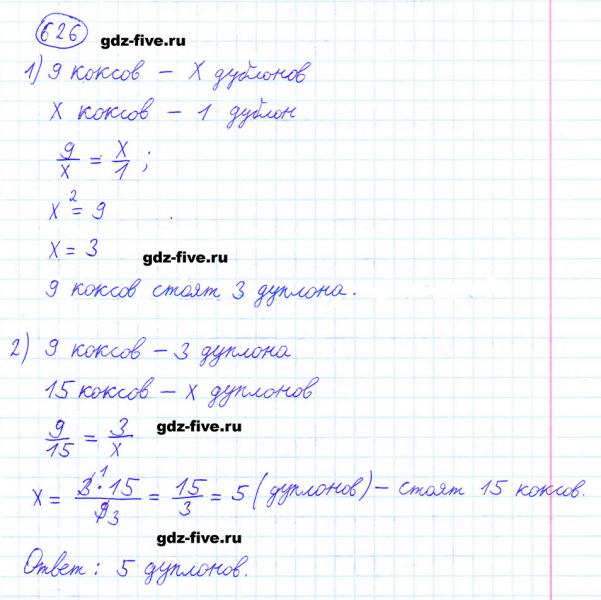 626 gdz-five.ru
1) 9 коксов – x дублонов
x коксов – 1 дублон
9/x = x/1 ;
x² = 9
x = 3 gdz-five.ru
9 коксов стоят 3 дуплона.
2) 9 коксов – 3 дуплона
15 коксов – x дуплонов
9/15 = 3/x gdz-five.ru
x = 3̸¹·15/9̸3 = 15/3 = 5 (дуплонов) – стоят 15 коксов.
gdz-five.ru
Ответ: 5 дуплонов.